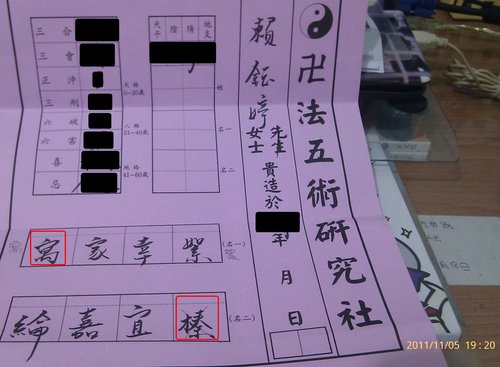 卍法五術研究社
賴鈺婷 先生 女士 貴造於
年 月 日
天干 陰陽 地支
姓
名一
名二
三合
三會
正沖
三刑
六破
六害
喜
忌
天格
0~20歲
人格
21~40歲
地格
41~60歲
(名一) 絮 幸 家 寫
(名二) 榛 宜 嘉 綸
2011/11/05 19:20